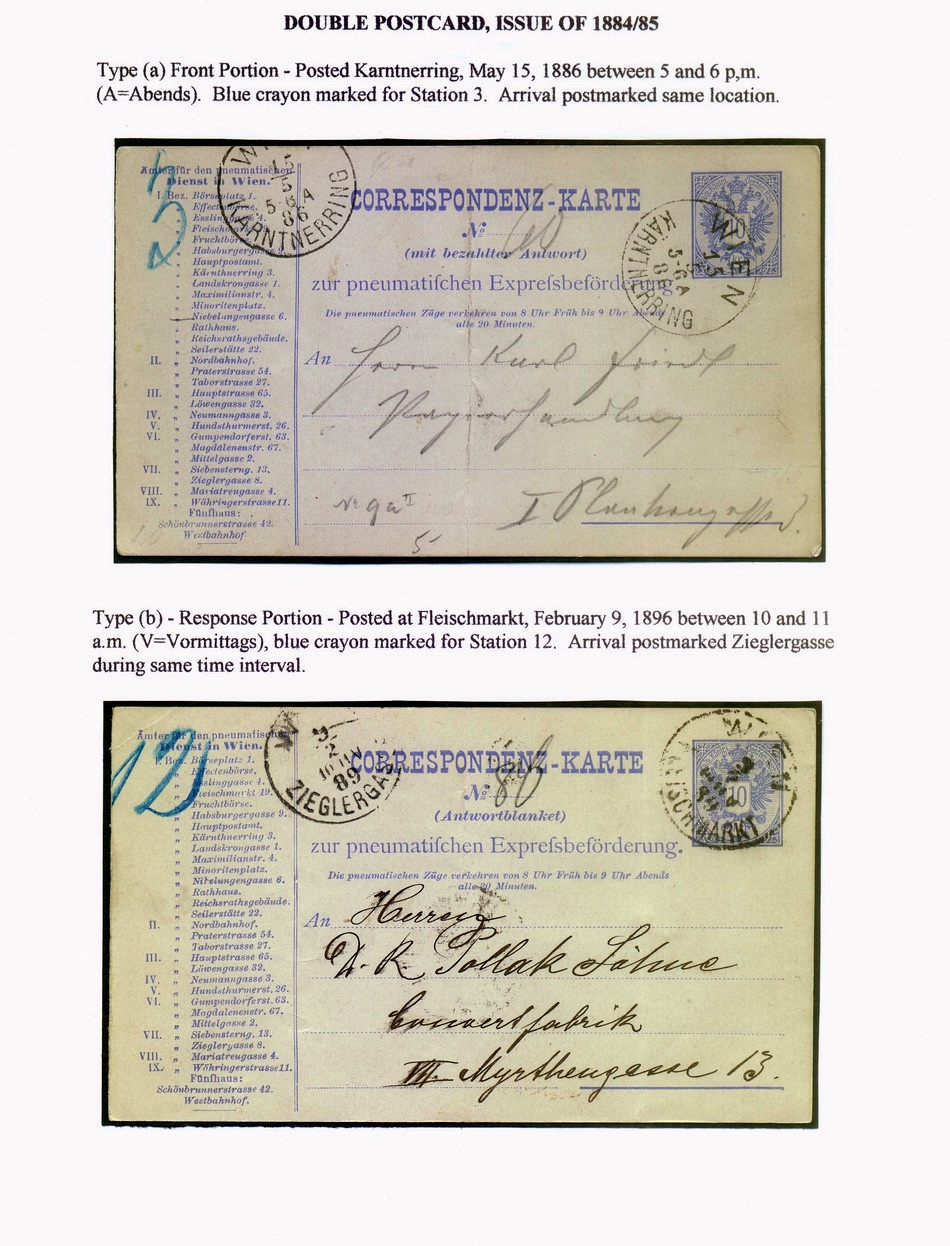 DOUBLE POSTCARD, ISSUE OF 1884/85
Type (a) Front Portion - Posted Karntnerring, May 15, 1886 between 5 and 6 p,m.
(A=Abends). Blue crayon marked for Station 3. Arrival postmarked same location.
3
Ämter für den pneumatischen
Dienst in Wien.
I. Bez. Börseplatz 1.
" Effectenbörse.
" Esslingg 4.
" Fleischm
" Fruchtbör
" Habsburgergasse
" Hauptpostamt.
" Kärnthnerring 3.
" Landskrongasse 1.
" Maximilianstr. 4.
" Minoritenplatz.
" Niebelungengasse 6.
" Rathhaus.
" Reichsrathsgebäude.
" Seilerstätte 22.
II. " Nordbahnhof.
" Praterstrasse 54.
" Taborstrasse 27.
III. " Hauptstrasse 65.
" Löwengasse 32.
IV. " Neumanngasse 3.
V. " Hundsthurmerst. 26.
VI. " Gumpendorferst. 63.
" Magdalenenstr. 67.
" Mittelgasse 2.
VII. " Siebensterng. 13.
" Zieglergasse 8.
VIII. " Mariatreugasse 4.
IX. " Währingerstrasse 11.
Fünfhaus:
Schönbrunnerstrasse 42.
Westbahnhof.
W
15
5
5-6A
86
KÄRNTNERRING
CORRESPONDENZ-KARTE
No 60
(mit bezahlter Antwort)
zur pneumatischen Expressbeförderung
Die pneumatischen Züge verkehren von 8 Uhr Früh bis 9 Uhr Abends
alle 20 Minuten.
WIEN
15
5
5-6A
86
KÄRNTNERRING
10
An Herrn Karl Friedl
Papierhandlung
No 9a II
I Plankengasse 3.
5
Type (b) - Response Portion - Posted at Fleischmarkt, February 9, 1896 between 10 and 11
a.m. (V=Vormittags), blue crayon marked for Station 12. Arrival postmarked Zieglergasse
during same time interval.
12
Ämter für den pneumatischen
Dienst in Wien.
I. Bez. Börseplatz 1.
" Effectenbörse,
" Esslinggasse 4.
" Fleischmarkt 19.
" Fruchtbörse.
" Habsburgergasse 9.
" Hauptpostamt.
" Kärnthnerring 3.
" Landskrongasse 1.
" Maximilianstr. 4.
" Minoritenplatz.
" Nibelungengasse 6.
" Rathhaus.
" Reichsrathsgebäude.
" Seilerstätte 22.
II. " Nordbahnhof.
" Praterstrasse 54.
" Taborstrasse 27.
III. " Hauptstrasse 65.
" Löwengasse 32.
IV. " Neumanngasse 3.
V. " Hundsthurmerst. 26.
VI. " Gumpendorferst. 63.
" Magdalenenstr. 67.
" Mittelgasse 2.
VII. " Siebensterng. 13.
" Zieglergasse 8.
VIII. " Mariatreugasse 4.
IX. " Währingerstrasse 11.
Fünfhaus:
Schönbrunnerstrasse 42.
Westbahnhof.
W
89
ZIEGLERGAS
CORRESPONDENZ-KARTE
No
(Antwortblanket)
zur pneumatischen Expressbeförderung.
Die pneumatischen Züge verkehren von 8 Uhr Früh bis 9 Uhr Abends
alle 20 Minuten.
WIEN
FLEISCHMARKT
10
An Herren
D. R. Pollak Söhne
Couvertfabrik
VII. Myrthengasse 13.